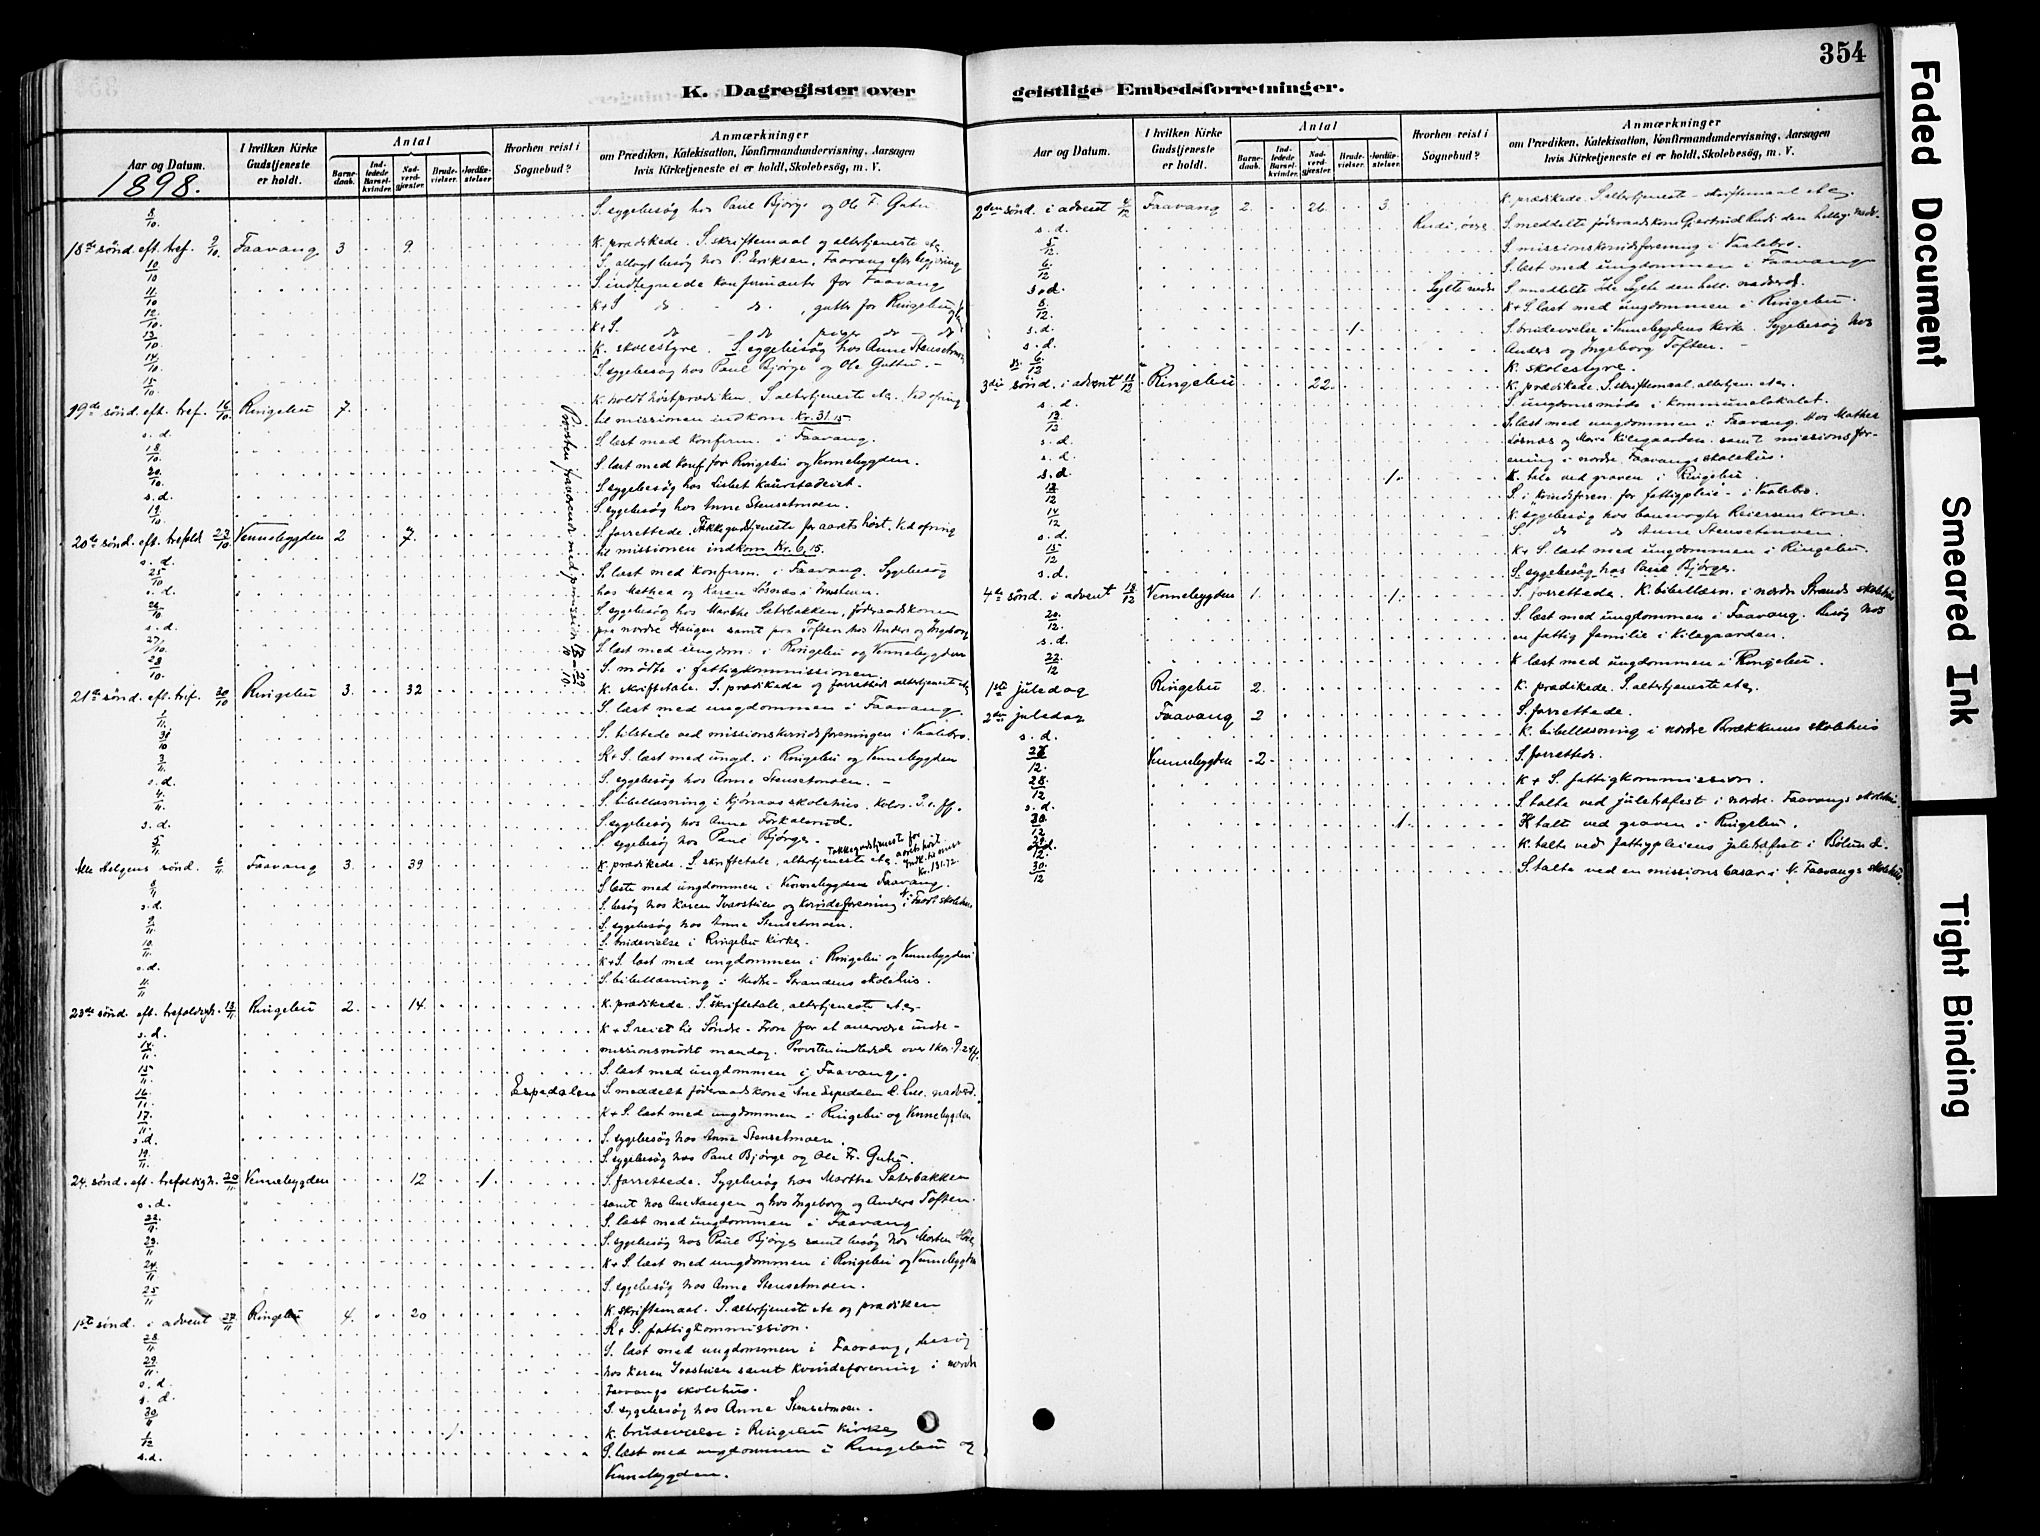 354
K. Dagregister over
geistlige Embedsforretninger.
Aar og Datum.
I hvilken Kirke Gudstjeneste er holdt.
Antal
Barnedaab.
Indledede Barselkvinder.
Nadverdgjæster.
Brudevielser.
Jordfæstelser.
Hvorhen reist i Sognebud?
Anmærkninger
om Prædiken, Katekisation, Konfirmandundervisning, Aarsagen
hvis Kirketjeneste ei er holdt, Skolebesøg, m. V.
1898.
8/10. S. sygebesøg hos Paul Bjørge og Ole F. Gutu
18de sønd. eft. tref. 9/10. Faavang 3 9. K. prædikede. S. skriftemaal og altertjeneste etc.
10/10 S. aflagt besøg hos P. Eriksen, Faavang efter begjæring
11/10 S. indtegnede konfirmanter for Faavang
12/10. K+S do - do , gutter for Ringebu
13/10 K+S. do - do piger do - do
14/10. K. skolestyre. S. sygebesøg hos Anne Stensetmoen
15/10 S. sygebesøg hos Paul Bjørge og Ole Guttu. -
19de sønd. eft. tref. 16/10. Ringebu 7. K. holdt høstprædiken. S. altertjeneste etc. Ved ofring
s. d. til missionen indkom Kr. 31.15
18/10. S. læst med konfirm. i Faavang.
20/10. S. læst med konf for Ringebu og Vennebygden.
s. d. S. sygebesøg hos Lisbet Kaurstadeiet.
19/10. S. sygebesøg hos Anne Stensetmoen.
Provsten fraværende med permission 13/10 - 29/10.
20de sønd. eft. trefold. 23/10 Vennebygden 2 7. S. forrettede Takkegudstjeneste for aarets høst. Ved ofring
s. d. til missionen indkom Kr. 6,15.
25/10 S. læst med konfirm. i Faavang. Sygebesøg
s. d. hos Mathea og Karen Løsnæs i
26/10 S. sygebesøg hos Marthe Sæterbakken, føderaadskonen
s. d. fra nordre Haugen samt paa Toften hos Anders og Ingeborg
27/10. S. læst med ungdom. i Ringebu og Vennebygden
28/10. S. mødte i fattigkommissionen.
21de sønd. eft. tref. 30/10 Ringebu 3. 32 K. skriftetale. S. prædikede og forrettede altertjeneste etc.
1/11. S. læst med ungdommen i Faavang.
31/10 S. tilstede ved missionskvindeforeningen i Vaalebro.
3/11. K+S. læst med ungd. i Ringebu og Vennebygden
s. d. S. sygebesøg hos Anne Stensetmoen. -
4/11. S. bibellæsning i Kjønaas skolehus. Kolos. 3.1. ff.
s. d. S. sygebesøg hos Anne Forkalsrud.
5/11 S. sygebesøg hos Paul Bjørge.
Alle Helgens sønd. 6/11 Faavang 3. 39 K. prædikede. S. skriftetale, altertjeneste etc. Takkegudstjeneste for aarets høst Indk. til miss. Kr. 131.72.
8/11 S. læste med ungdommen i Faavang.
s. d. S. besøg hos Karen Ivarstuen og kvindeforening i N. Faav. skolehus
9/11 S. sygebesøg hos Anne Stensetmoen.
10/11. S. brudevielse i Ringebu Kirke.
s. d. K+S. læst med ungdommen i Ringebu og Vennebygden
11/11 S. bibellæsning i Strandens skolehus.
23de sønd. eft. trefoldigh. 13/11. Ringebu 2. 14. K. prædikede. S. skriftetale, altertjeneste etc.
s. d. K+S reist til Søndre-Fron for at overvære indre-
14/11. missionsmødet mandag. Provsten indledede over 1 Kor. 9.24 ff.
15/11. S. læst med ungdommen i Faavang.
16/11. Espedalen S. meddelt føderaadskone Ane Espedalen d. hel. nadverd.
17/11. K+S. læst med ungdommen i Ringebu og Vennebygden
s. d. S. sygebesøg hos Anne Stensetmoen.
19/11. S. sygebesøg hos Paul Bjørge og Ole Fr. Gutu.
24. sønd. eft. trefoldigh. 20/11 Vennebygden 12 1. S. forrettede. Sygebesøg hos Marthe Sæterbakken
s. d. samt hos Ane Haugen og hos Ingeborg og Anders Toften.
22/11. S. læst med ungdommen i Faavang
23/11 S. sygebesøg hos Paul Bjørge samt besøg hos Morten
24/11 K+S. læst med ungdommen i Ringebu og Vennebygden
25/11 S. sygebesøg hos Anne Stensetmoen.
1ste sønd. i advent 27/11 Ringebu 4. 20 K. skriftemaal. S. altertjeneste etc og prædiken
28/11 K+S. fattigkommission.
29/11 S. læst med ungdommen i Faavang, besøg
s. d. hos Karen Ivarstuen samt kvindeforening i nordre
s. d. Faavangs skolehus.
30/11 S. sygebesøg hos Anne Stensetmoen.
1/12 1 K. brudevielse i Ringebu Kirke
s.d. S. læst med ungdommen i Ringebu og
Vennebygden.
Aar og Datum.
I hvilken Kirke Gudstjeneste er holdt.
Antal
Barnedaab.
Indledede Barselkvinder.
Nadverdgjæster.
Brudevielser.
Jordfæstelser.
Hvorhen reist i Sognebud?
Anmærkninger
om Prædiken, Katekisation, Konfirmandundervisning, Aarsagen
hvis Kirketjeneste ei er holdt, Skolebesøg, m. V.
2den sønd. i advent 4/12 Faavang 2. 26. 3. K. prædikede. S. altertjeneste - skriftemaal etc.
s. d. Rudi, øvre S. meddelte føderaadskone Gjertrud Rudi den hellige nadv.
5/12. S. missionskvindeforening i Vaalebro.
6/12 S. læst med ungdommen i Faavang
s. d. Sylte nedre S. meddelte Sylte den hell. nadverd.
8/12. K+S. læst med ungdommen i Ringebu.
s. d. 1. S. brudevielse i Vennebygdens Kirke. Sygebesøg hos
s. d. Anders og Ingeborg Toften. -
6/12 K. skolestyre.
3die sønd. i advent 11/12 Ringebu 22. K. prædikede. S. skriftemaal, altertjen. etc.
s. d. S. ungdomsmøde i kommunelokalet.
13/12 S. læst med ungdommen i Faavang. Hos Mathea
s. d. Løsnæs og Kilegaarden samt missionsfor-
s. d. ening i nordre Faavangs skolehus.
s. d. 1. K. tale ved graven i Ringebu.
12/12 S. i kvindeforen. for fattigpleie i Vaalebro.
14/12 K. sygebesøg hos banevogter kone.
s. d. S. do do Anne Stensetmoen.
15/12 K+S. læst med ungdommen i Ringebu.
s. d. S. sygebesøg hos Paul Bjørge.
4de sønd. i advent 18/12 Vennebygden 1. 1. S. forrettede. K. bibellæsn. i nordre Strands skolehus
20/12. S. læst med ungdommen i Faavang. Besøg hos
s. d. en fattig familie i Kilegaarden.
22/12 K læst med ungdommen i Ringebu.
1ste juledag Ringebu 2. K. prædikede. S. altertjeneste etc.
2den juledag Faavang 2 S. forrettede.
s. d. K. bibellæsning i nordre Brækkums skolehus
27/12. Vennebygden 2 S. forrettede.
28/12 K+S. fattigkommission.
s. d. S. talte ved juletræfest i nordre Faavangs skolehus.
30/12 1. K talte ved graven i Ringebu.
29/12. K. talte ved fattigpleiens juletræfest i
30/12 S. talte ved en missionsbasar i N. Faavangs skolehus.
Faded Document
Smeared Ink
Tight Binding